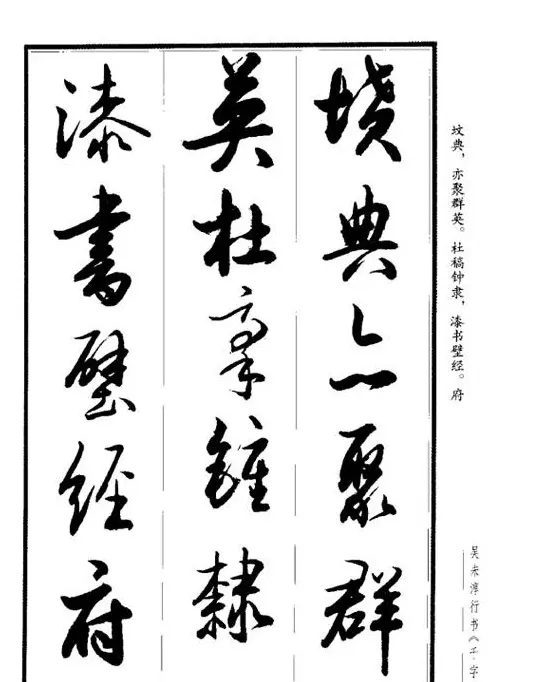 坟典，亦聚群英。杜稿钟隶，漆书壁经。府
吴未淳行书《千字
墳典亦聚群
英杜稾鍾隸
漆書壁經府